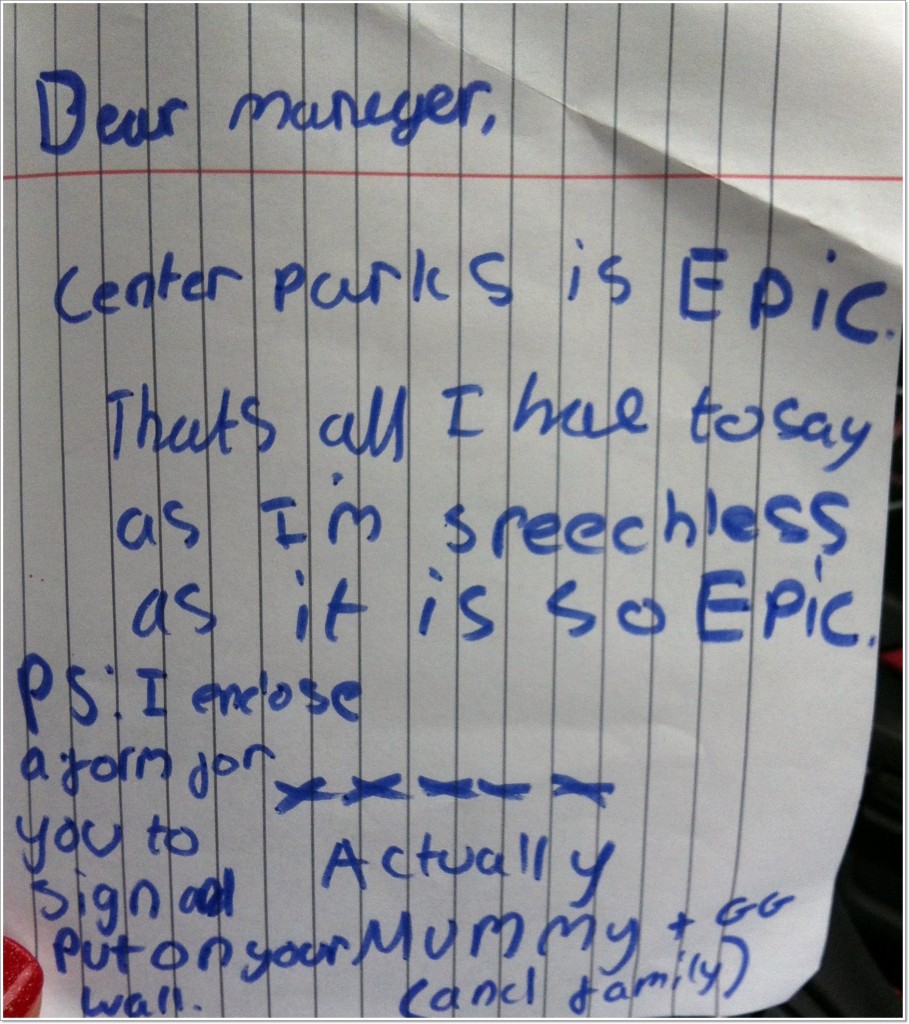 Dear maneger,
Center parks is EPiC.
Thats all I hae to say
as I'm sreechless
as it is so EPiC.
PS: I enclose
a form for
you to
sign and
put on your
wall.
x x x x x
Actually
Mummy + GG
(and family)